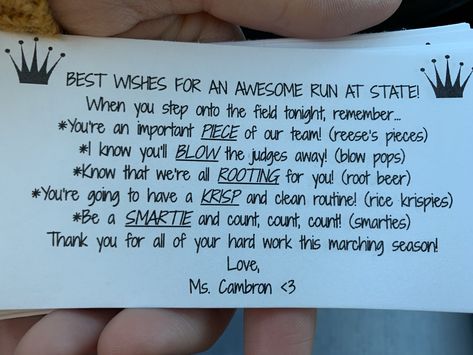 BEST WISHES FOR AN AWESOME RUN AT STATE!
When you step onto the field tonight, remember...
*You're an important PIECE of our team! (reese's pieces)
*I know you'll BLOW the judges away! (blow pops)
*Know that we're all ROOTING for you! (root beer)
*You're going to have a KRISP and clean routine! (rice krispies)
*Be a SMARTIE and count, count, count! (smarties)
Thank you for all of your hard work this marching season!
Love,
Ms. Cambron <3